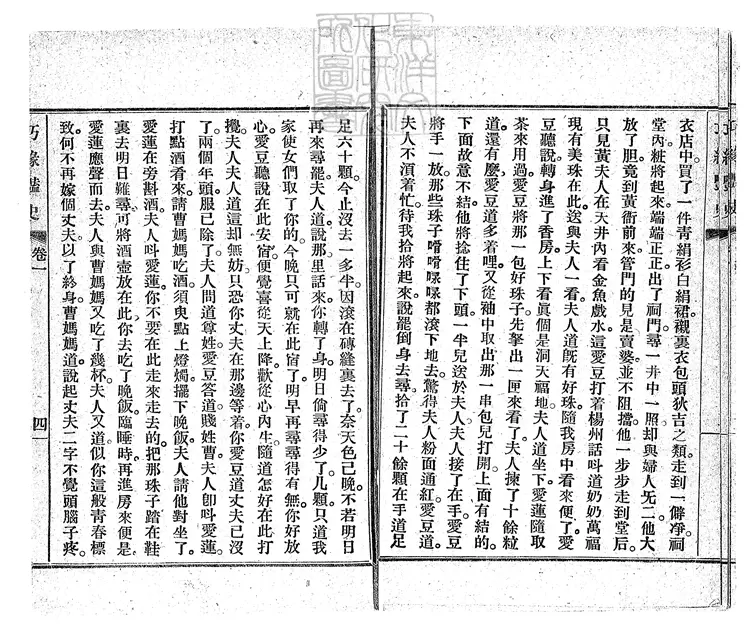 衣店中買了一件青絹衫白絹裙襯裏衣包頭狄吉之類走到一僻凈祠
堂內粧將起來端端正正出了祠門尋一井中一照却與婦人旡二他大
放了胆竟到黃衙前來管門的見是賣婆並不阻擋他一步步走到堂后。
只見黃夫人在天井內看金魚戲水這愛豆打着楊州話呌道奶奶萬福
現有美珠在此送與夫人一看夫人道旣有好珠隨我房中看來便了愛
豆聽說轉身進了香房上下看眞個是洞天福地夫人道坐下愛蓮隨取
茶來用過愛豆將那一包好珠子先拏出一匣來看了夫人揀了十餘粒
道還有麼愛豆道多着哩又從袖中取出那一串包兒打開上面有結的。
下面故意不結他將捻住了下頭一半兒送於夫人夫人接了在手愛豆
將手一放那些珠子嘚嘚嘟嘟都滾下地去驚得夫人粉面通紅愛豆道。
夫人不湏着忙待我拾將起來說罷倒身去尋拾了二十餘顆在手道足
足六十顆今止沒去一多半因滾在磚縫裏去了奈天色已晚不若明日
再來尋罷夫人道說那里話來你轉了身明日倘尋得少了几顆只道我
家使女們取了你的今晚只可就在此宿了明早再尋尋得有無你好放
心愛豆聽說在此安宿便覺喜從天上降歡從心內生隨道怎好在此打
攪夫人夫人道這却無妨只恐你丈夫在那邊等着你愛豆道丈夫已沒
了兩個年頭服已除了夫人問道尊姓愛豆答道賤姓曹夫人卽呌愛蓮。
打點酒肴來請曹媽媽吃酒須臾點上燈燭擺下晚飯夫人請他對坐了。
愛蓮在旁斟酒夫人呌愛蓮你不要在此走來走去的把那珠子踏在鞋
裏去明日難尋可將酒壺放在此你去吃了晚飯臨睡時再進房來便是
愛蓮應聲而去夫人與曹媽媽又吃了幾杯夫人又道似你這般青春標
致何不再嫁個丈夫以了終身曹媽媽道說起丈夫二字不覺頭腦子疼。
巧緣豔史　卷一　四